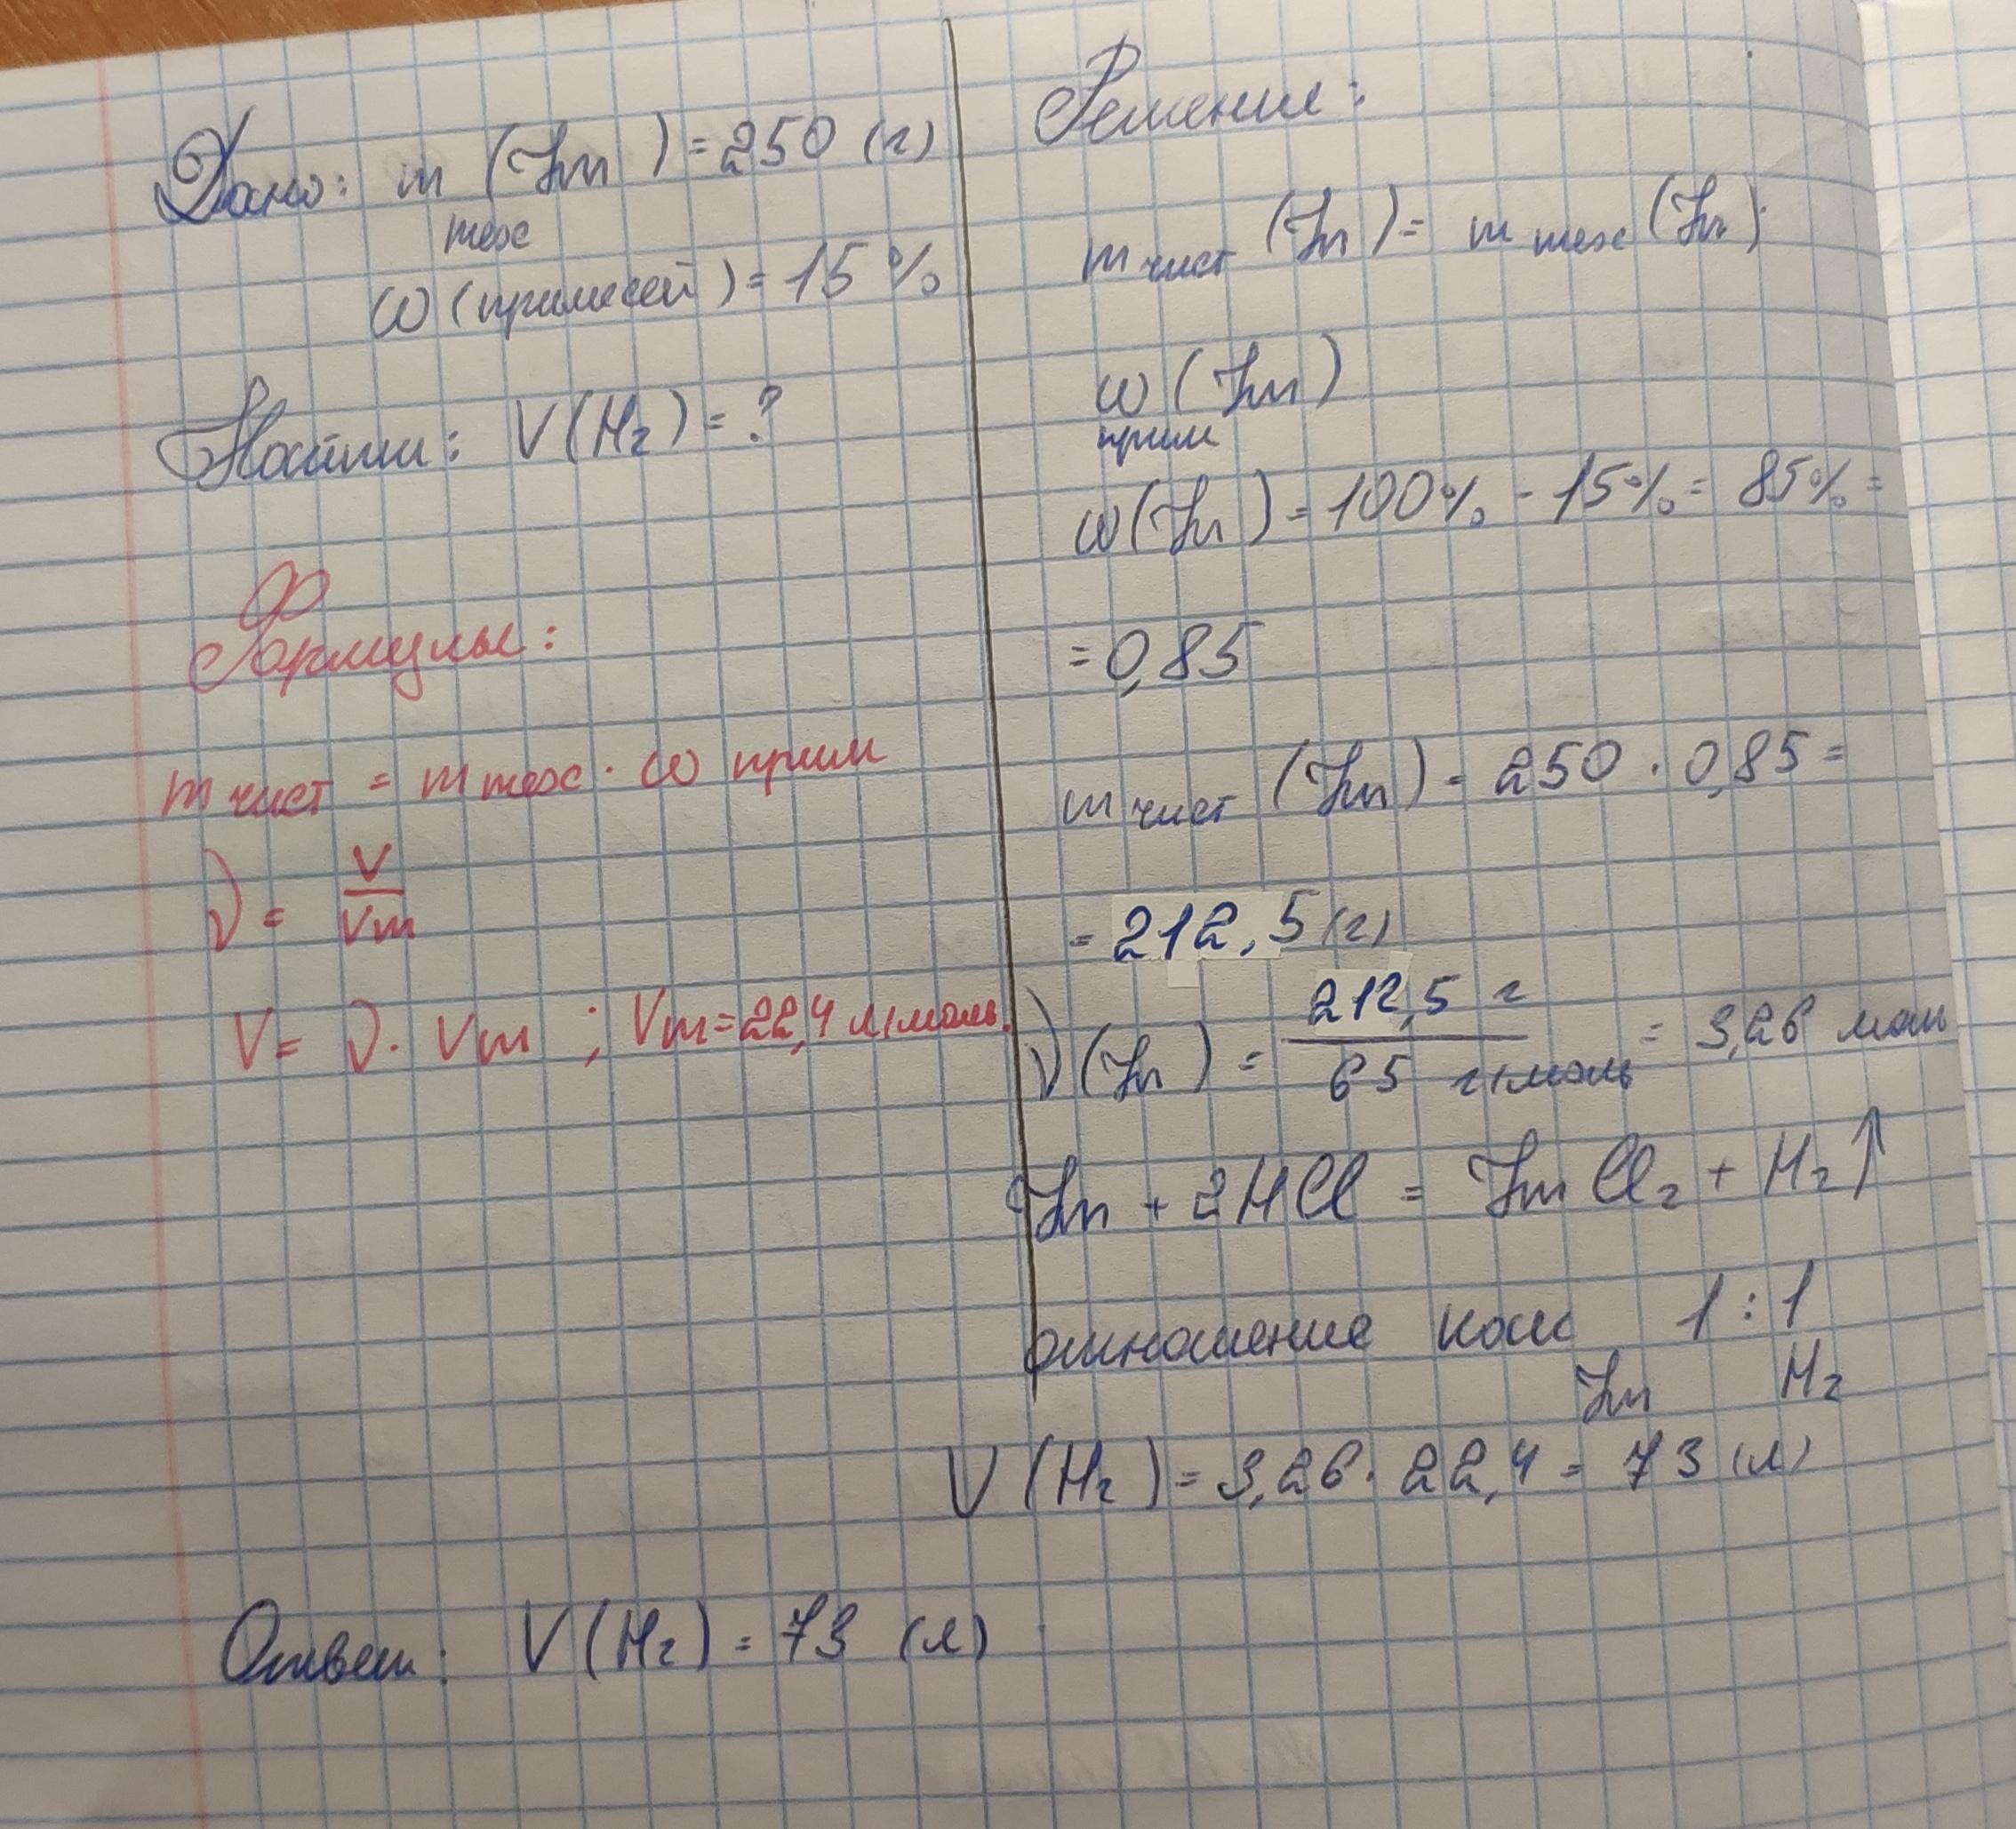 Дано: m (Zn) = 250 (г)
тех
ω (примесей) = 15 %
Найти: V(H₂) = ?
Формулы:
m чист = m тех · ω прим
ν = V/Vm
V = ν · Vm ; Vm = 22,4 л/моль.
Решение:
m чист (Zn) = m тех (Zn) ·
ω (Zn)
прим
ω(Zn) = 100% - 15% = 85% =
= 0,85
m чист (Zn) = 250 · 0,85 =
= 212,5 (г)
ν(Zn) = 212,5 г / 65 г/моль = 3,26 моль
Zn + 2HCl = ZnCl₂ + H₂↑
отношение колс 1 : 1
Zn H₂
V (H₂) = 3,26 · 22,4 = 73 (л)
Ответ: V(H₂) = 73 (л)